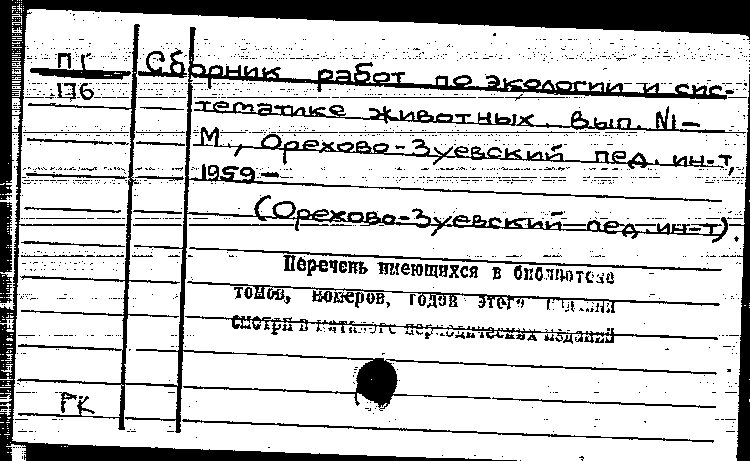 ПГ
176
Сборник работ по экологии и сис-
тематике животных. Вып. №1–
М., Орехово-Зуевский пед. ин-т,
1959–
(Орехово-Зуевский пед. ин-т).
Перечень имеющихся в библиотеке
томов, номеров, годов этого издания
смотри в каталоге периодических изданий
РК